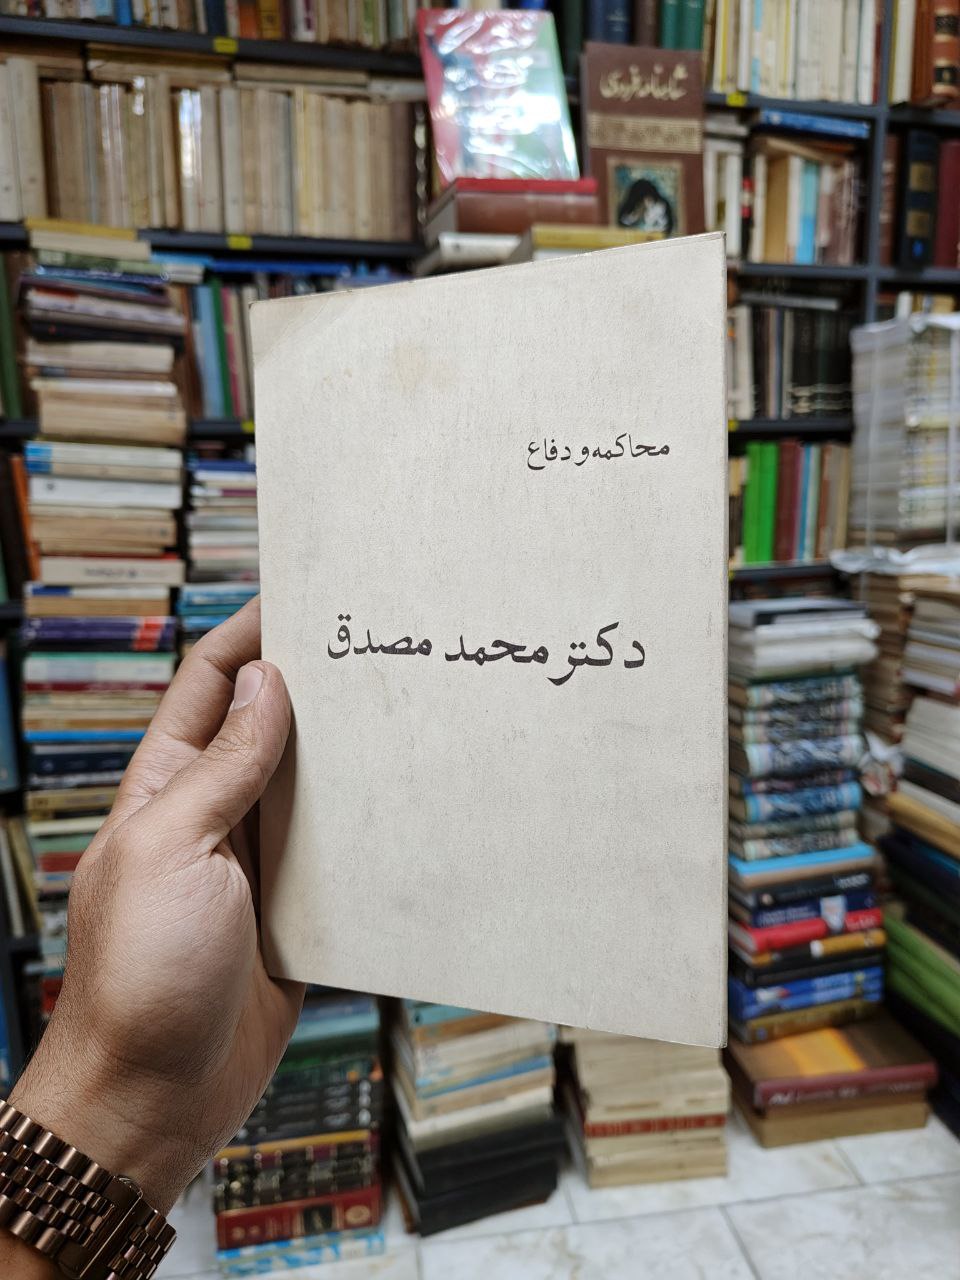 شاهنامه فردوسی
محاکمه و دفاع
دکتر محمد مصدق